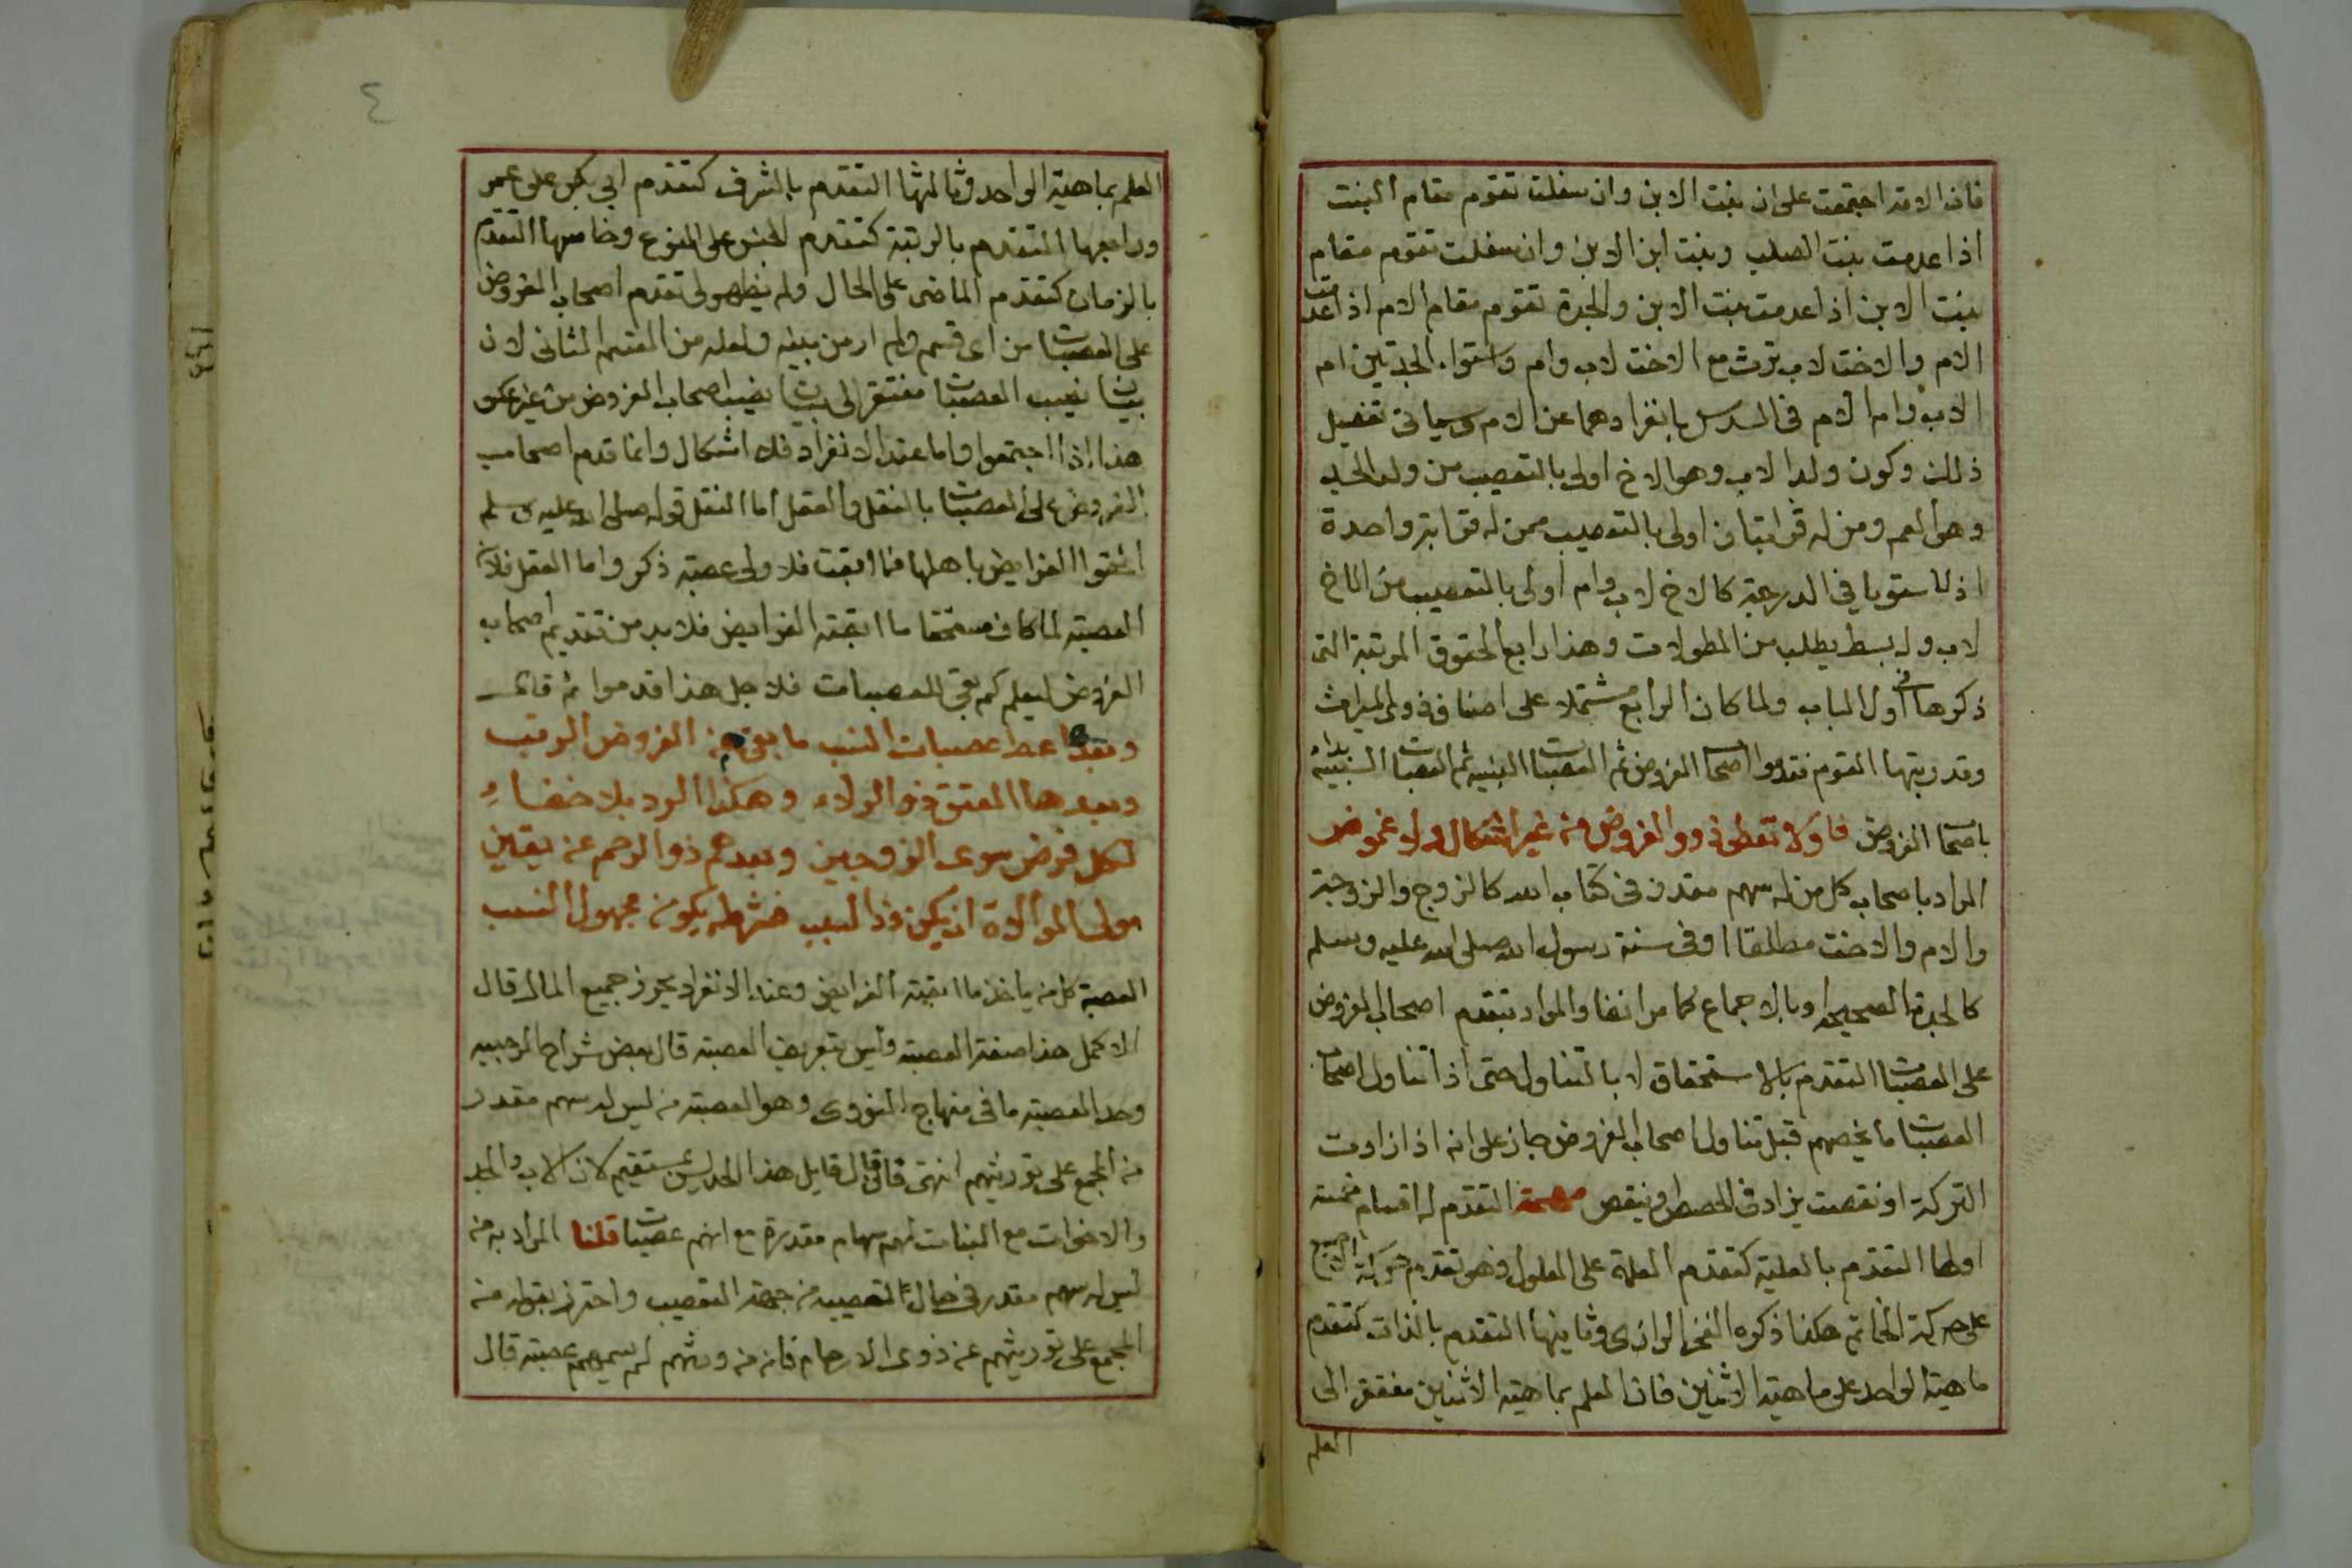 فان الامة اجتمعت على ان بنت الابن وان سفلت تقوم مقام البنت
اذا عدمت بنت الصلب وبنت ابن الابن وان سفلت تقوم مقام
بنت الابن اذا عدمت بنت الابن والجدة تقوم مقام الام اذا عدمت
الام والاخت لاب ترث مع الاخت لاب وام واستواء الجدتين ام
الاب وام الام في السدس بانفرادهما عن الام وسياتي تفصيل
ذلك وكون ولد الاب وهو الاخ اولى بالتعصيب من ولد الجد
وهو العم ومن له قرابتان اولى بالتعصيب ممن له قرابة واحدة
اذا استويا في الدرجة كالاخ لاب وام اولى بالتعصيب من الاخ
لاب وله بسط يطلب من المطولات وهذا رابع الحقوق المرتبة التي
ذكرها في اول الباب ولما كان الرابع مشتملا على اصناف ذوي الميراث
وقد رتبها القوم فقدموا اصحاب الفروض ثم العصبات النسبية ثم العصبات السببية بداء
باصحاب الفروض فاولا تعطى ذوو الفروض من غير اشكال ولا غموض
المراد باصحاب كل من له سهم مقدر في كتاب الله كالزوج والزوجة
والام والاخت مطلقا او في سنة رسول الله صلى الله عليه وسلم
كالجدة الصحيحة او بالاجماع كما مر انفا والمراد بتقدم اصحاب الفروض
على العصبات التقدم بالاستحقاق لا بالتناول حتى اذا تناول اصحاب
العصبات ما يخصهم قبل تناول اصحاب الفروض جاز على انه اذا زادت
التركة او نقصت يزاد في الحصص او ينقص مهمة التقدم له اقسام خمسة
اولها التقدم بالعلية كتقدم العلة على المعلول وهو تقدم حركة الاصبع
على حركة الخاتم هكذا ذكره الفخر الرازي وثانيها التقدم بالذات كتقدم
ماهية الواحد على ماهية الاثنين فان العلم بماهية الاثنين مفتقر الى
العلم
٤
العلم بماهية الواحد وثالثها التقدم بالشرف كتقدم ابي بكر على عمر
ورابعها التقدم بالرتبة كتقدم الجنس على النوع وخامسها التقدم
بالزمان كتقدم الماضي على الحال ولم يظهر لي تقدم اصحاب الفروض
على العصبات من اي قسم ولم ار من بينه ولعله من القسم الثاني لان
بيان نصيب العصبات مفتقر الى بيان نصيب اصحاب الفروض من غير عكس
هذا اذا اجتمعوا واما عند الانفراد فلا اشكال وانما قدم اصحاب
الفروض على العصبات بالنقل والعقل اما النقل قوله صلى الله عليه وسلم
الحقوا الفرايض باهلها فما ابقت فلاولى عصبة ذكر واما العقل فلان
العصبة لما كان مستحقا ما ابقته الفرايض فلا بد من تقديم اصحاب
الفروض ليعلم كم بقي للعصبات فلاجل هذا قدموا ثم قال
وبعدها عط عصبات النسب ما بقي من الفروض الرتب
وبعدها المعتق ذو الولاء وهكذا الرد بلا خفاء
لكل فرض سوى الزوجين وبعدهم ذو الرحم عن يقين
مولى الموالاة ان يكن ذا السبب فشرطه يكون مجهول النسب
العصبة كل من ياخذ ما ابقته الفرايض وعند الانفراد يحرز جميع المال قال
الاكمل هذا صفة العصبة وليس تعريف العصبة قال بعض شراح الرحبيه
وحد العصبة ما في منهاج النووي وهو العصبة من ليس له سهم مقدر
من المجمع على توريثهم انتهى فان قال قايل هذا الحد ليس بمستقيم لان الاب والجد
والاخوات مع البنات لهم سهام مقدرة مع انهم عصبات قلنا المراد به من
ليس له سهم مقدر في حال تعصيبه من جهة التعصيب واحترز بقوله من
المجمع على توريثهم عن ذوي الارحام فانه من ورثهم لم يسميهم عصبة قال